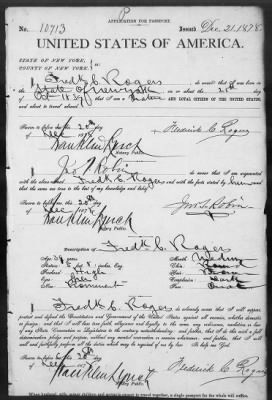 APPLICATION FOR PASSPORT.
No. 10713 Issued Dec. 21. 1878
UNITED STATES OF AMERICA.
STATE OF NEW YORK,
COUNTY OF NEW YORK.
I, Fredk C. Rogers do swear that I was born in the
State of New York on or about the 21st day
of 1839 that I am a Native AND LOYAL CITIZEN OF THE UNITED STATES
and about to travel abroad.
Sworn to before me this 20th day
of Dec 1878 Frederick C. Rogers
Franklin Lynch
Notary Public.
I, Jno. T. Robin do swear that I am acquainted
with the above named Fredk C. Rogers and with the facts stated by him and
that the same are true to the best of my knowledge and belief.
Sworn to before me this 20th day
of Dec 1878 Jno. T. Robin
Franklin Lynch
Notary Public.
Description of Fredk C. Rogers
Age: 39 years Mouth: Medium
Stature: 5 feet 8 inches, Eng. Chin: Round
Forehead: High Hair: Brown
Eyes: Complexion: Dark
Nose: Prominent Face: Oval
I, Fredk C. Rogers do solemnly swear that I will support,
protect and defend the Constitution and Government of the United States against all enemies, whether domestic
or foreign, and that I will bear true faith, allegiance and loyalty to the same, any ordinance, resolution or law
of any State, Convention or Legislature to the contrary notwithstanding; and further, that I do this with a full
determination, pledge and purpose, without any mental reservation or evasion whatsoever; and further, that I will
well and faithfully perform all the duties which may be required of me by law. So help me God.
Sworn to before me this 20th day
of Dec 1878 Frederick C. Rogers
Franklin Lynch
Notary Public.